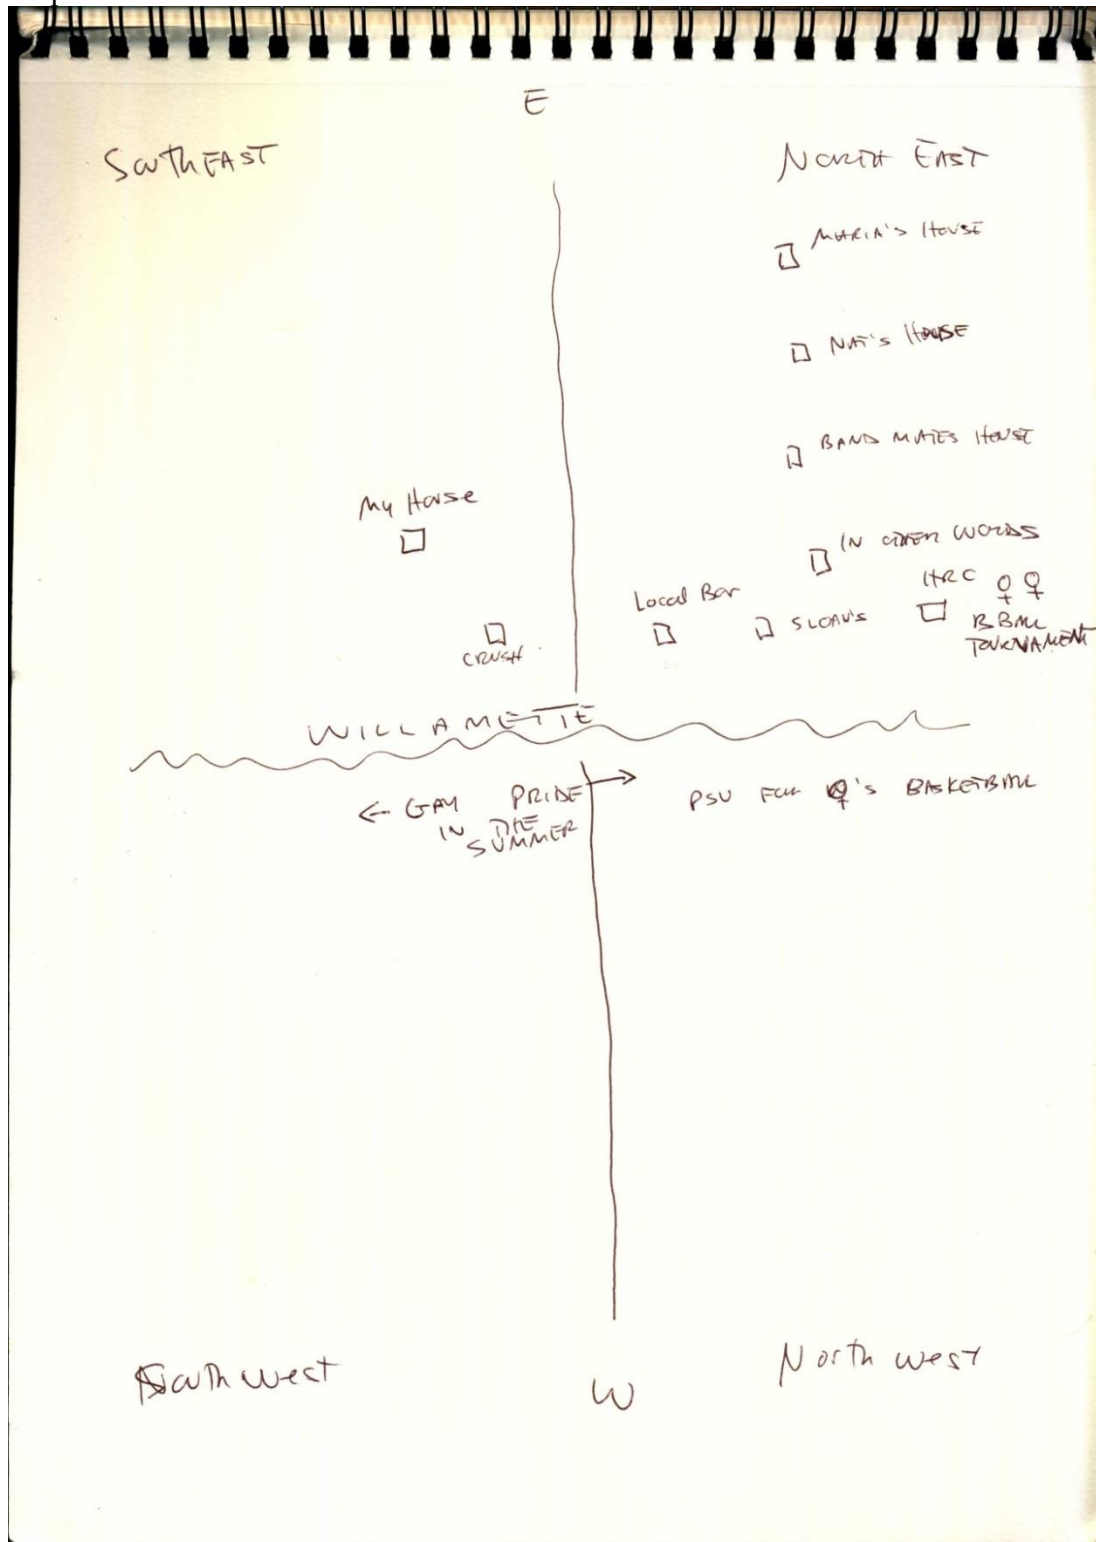 E
SouthEAST
NORTH EAST
MARIA'S HOUSE
NAT'S HOUSE
BAND MATES HOUSE
My House
IN OTHER WORDS
HRC ♀♀
Local Bar
SLOAN'S
B BALL
TOURNAMENT
CRUSH
WILLAMETTE
← GAY PRIDE
IN THE
SUMMER
→ PSU FOR ♀'s BASKETBALL
South west
North west
W